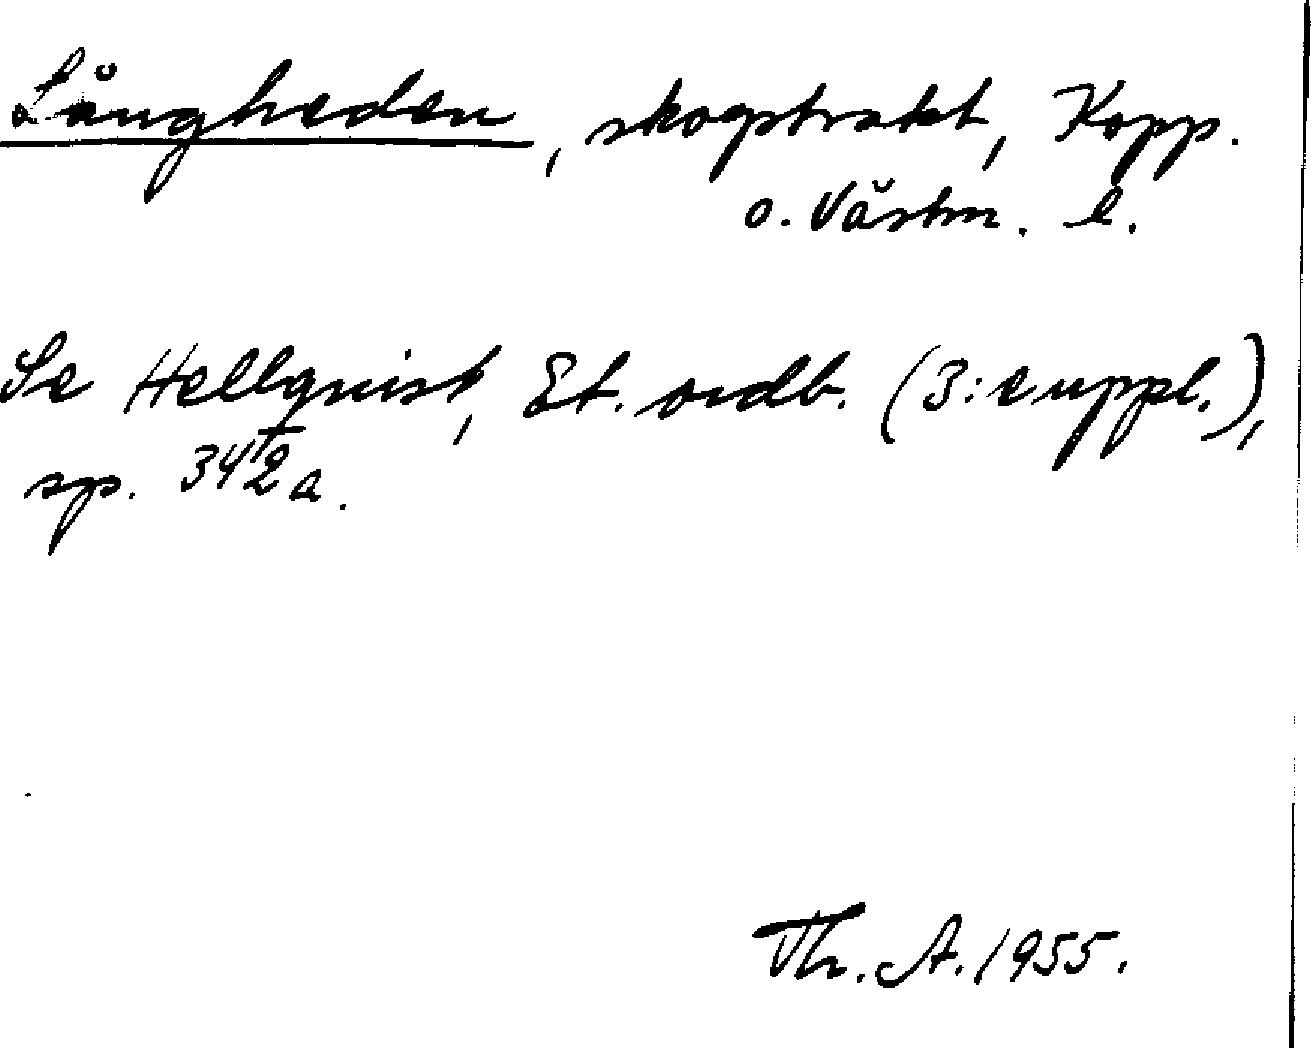 Långheden, skogstrakt, Kopp.
o. Västm. l.
Se Hellquist, Et. ordb. (3:e uppl.),
sp. 342 a.
Th. A. 1955.